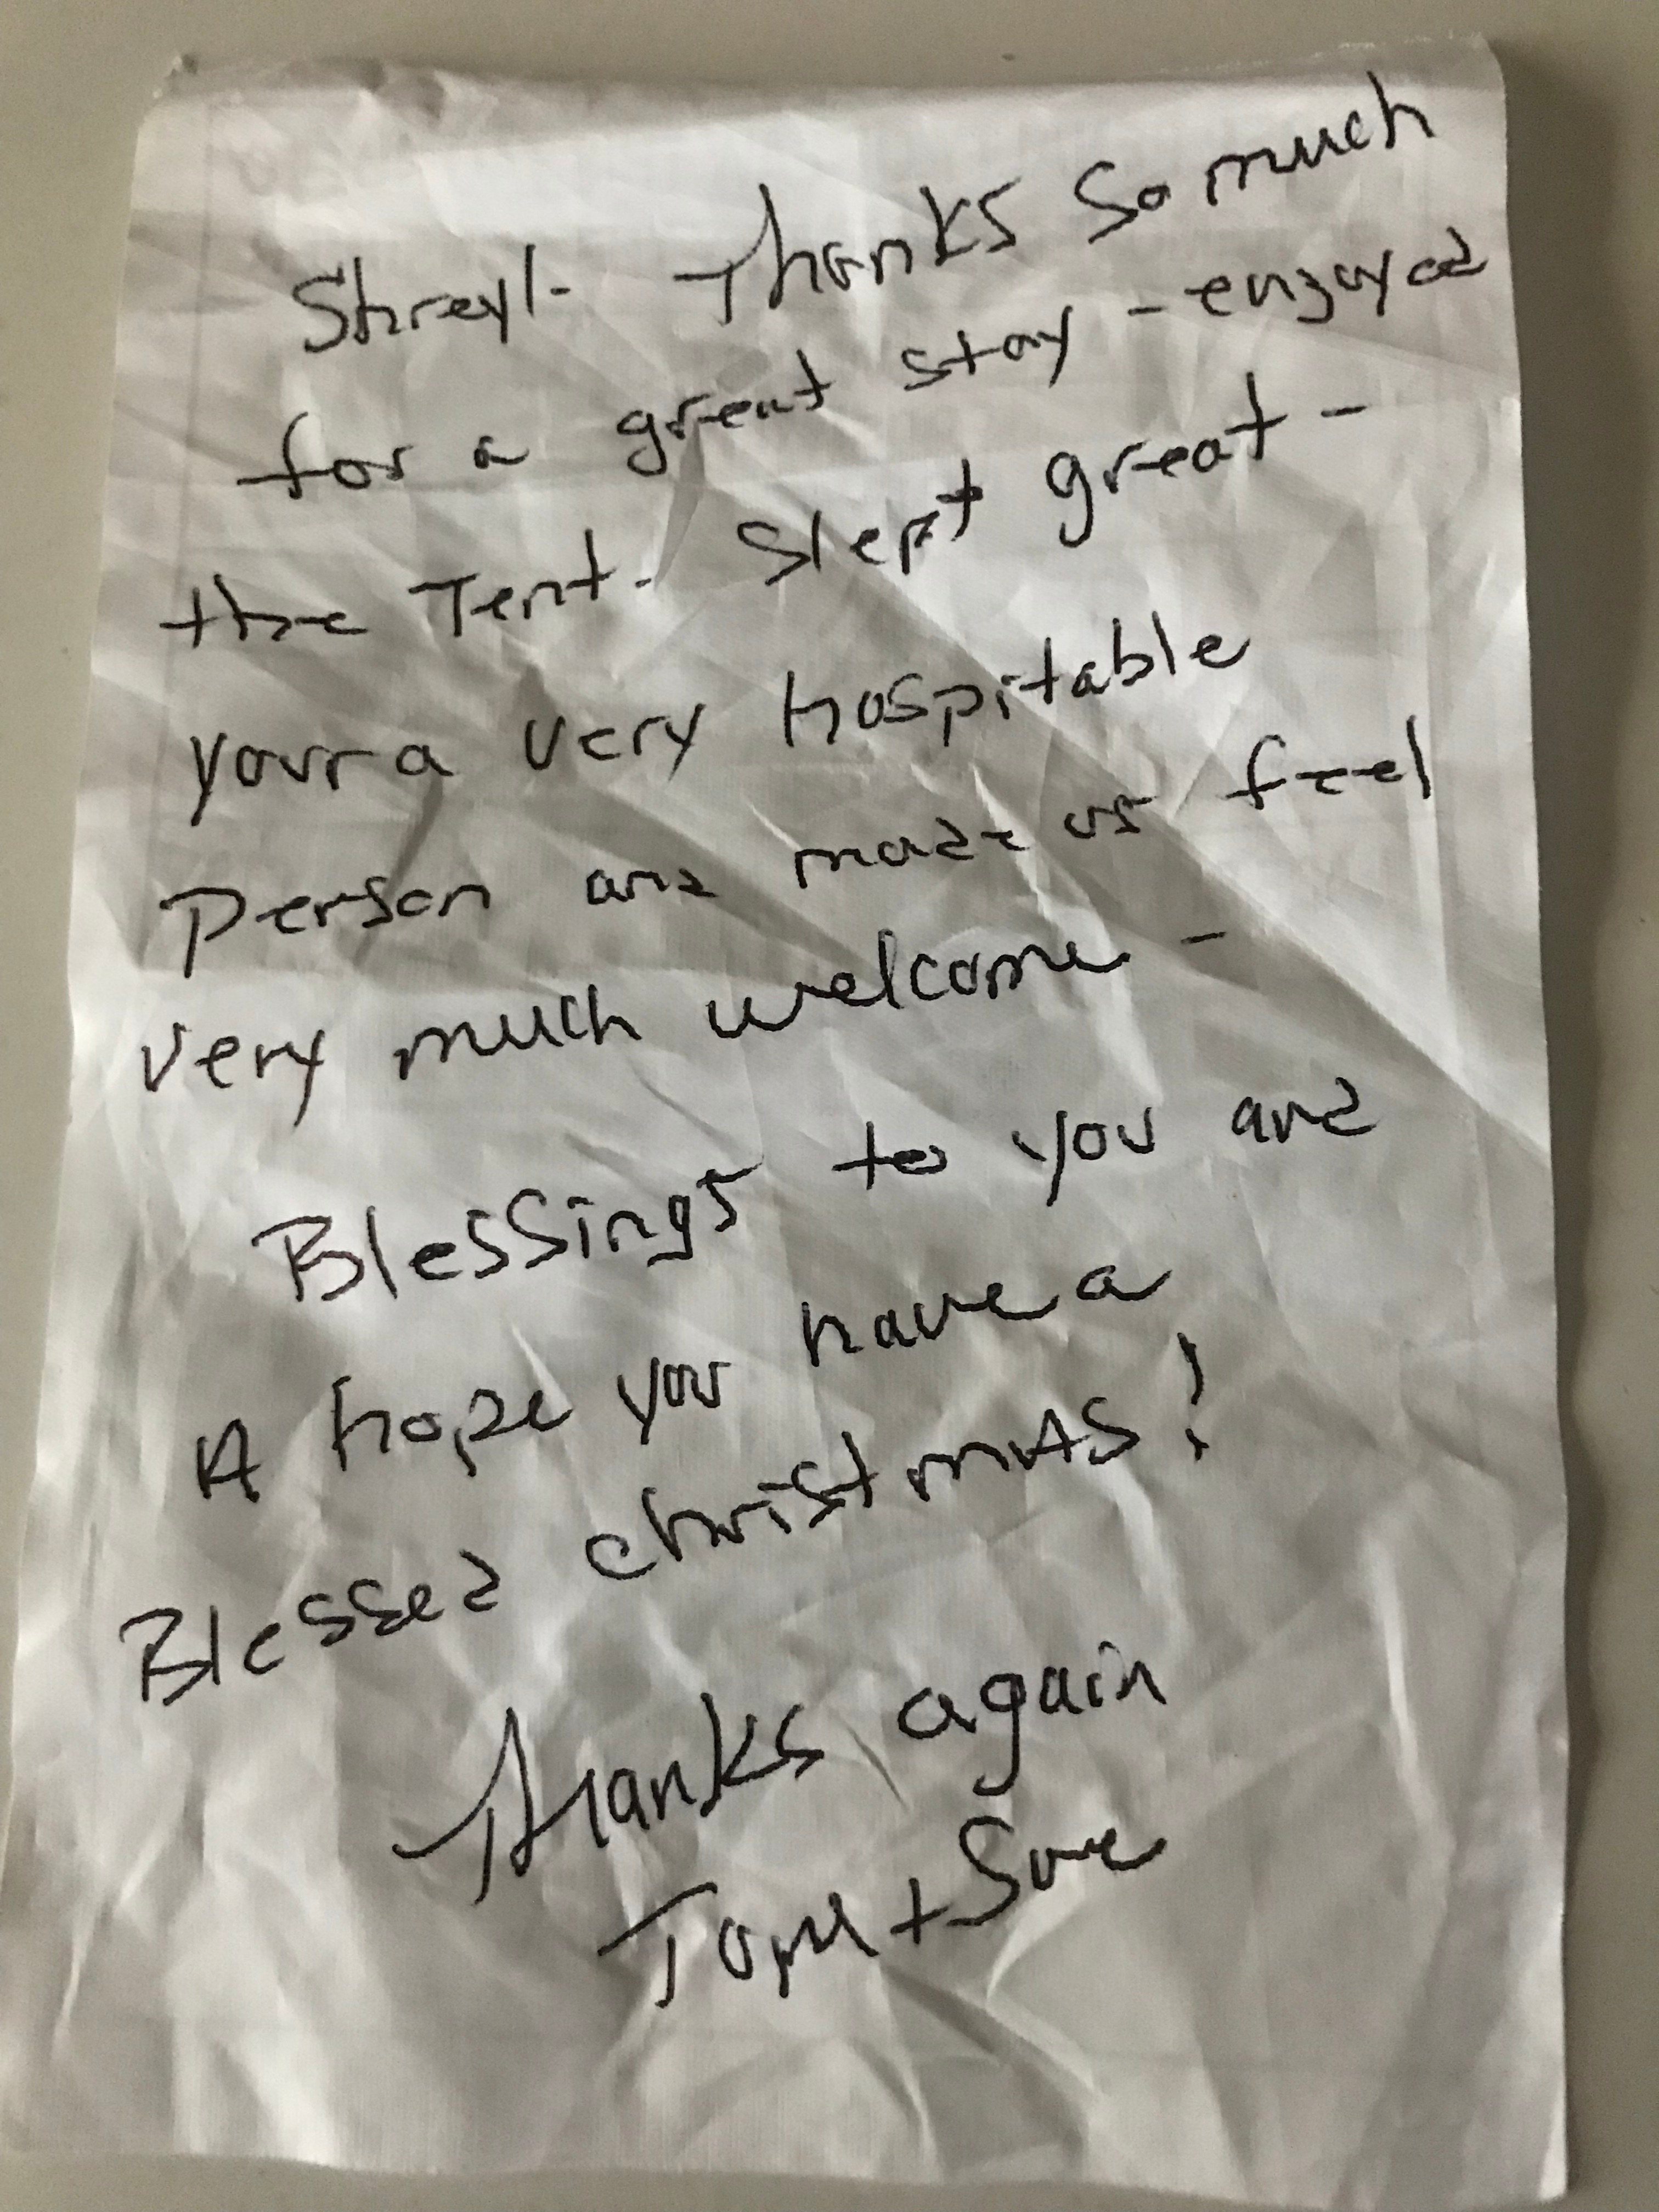 Shreyl- Thanks so much
for a great stay - enjoyed
the Tent- Slept great -
your a very hospitable
Person and made us feel
very much welcome -
Blessings to you and
A hope you have a
Blessed christmAS!
Thanks again
Tom + Sue